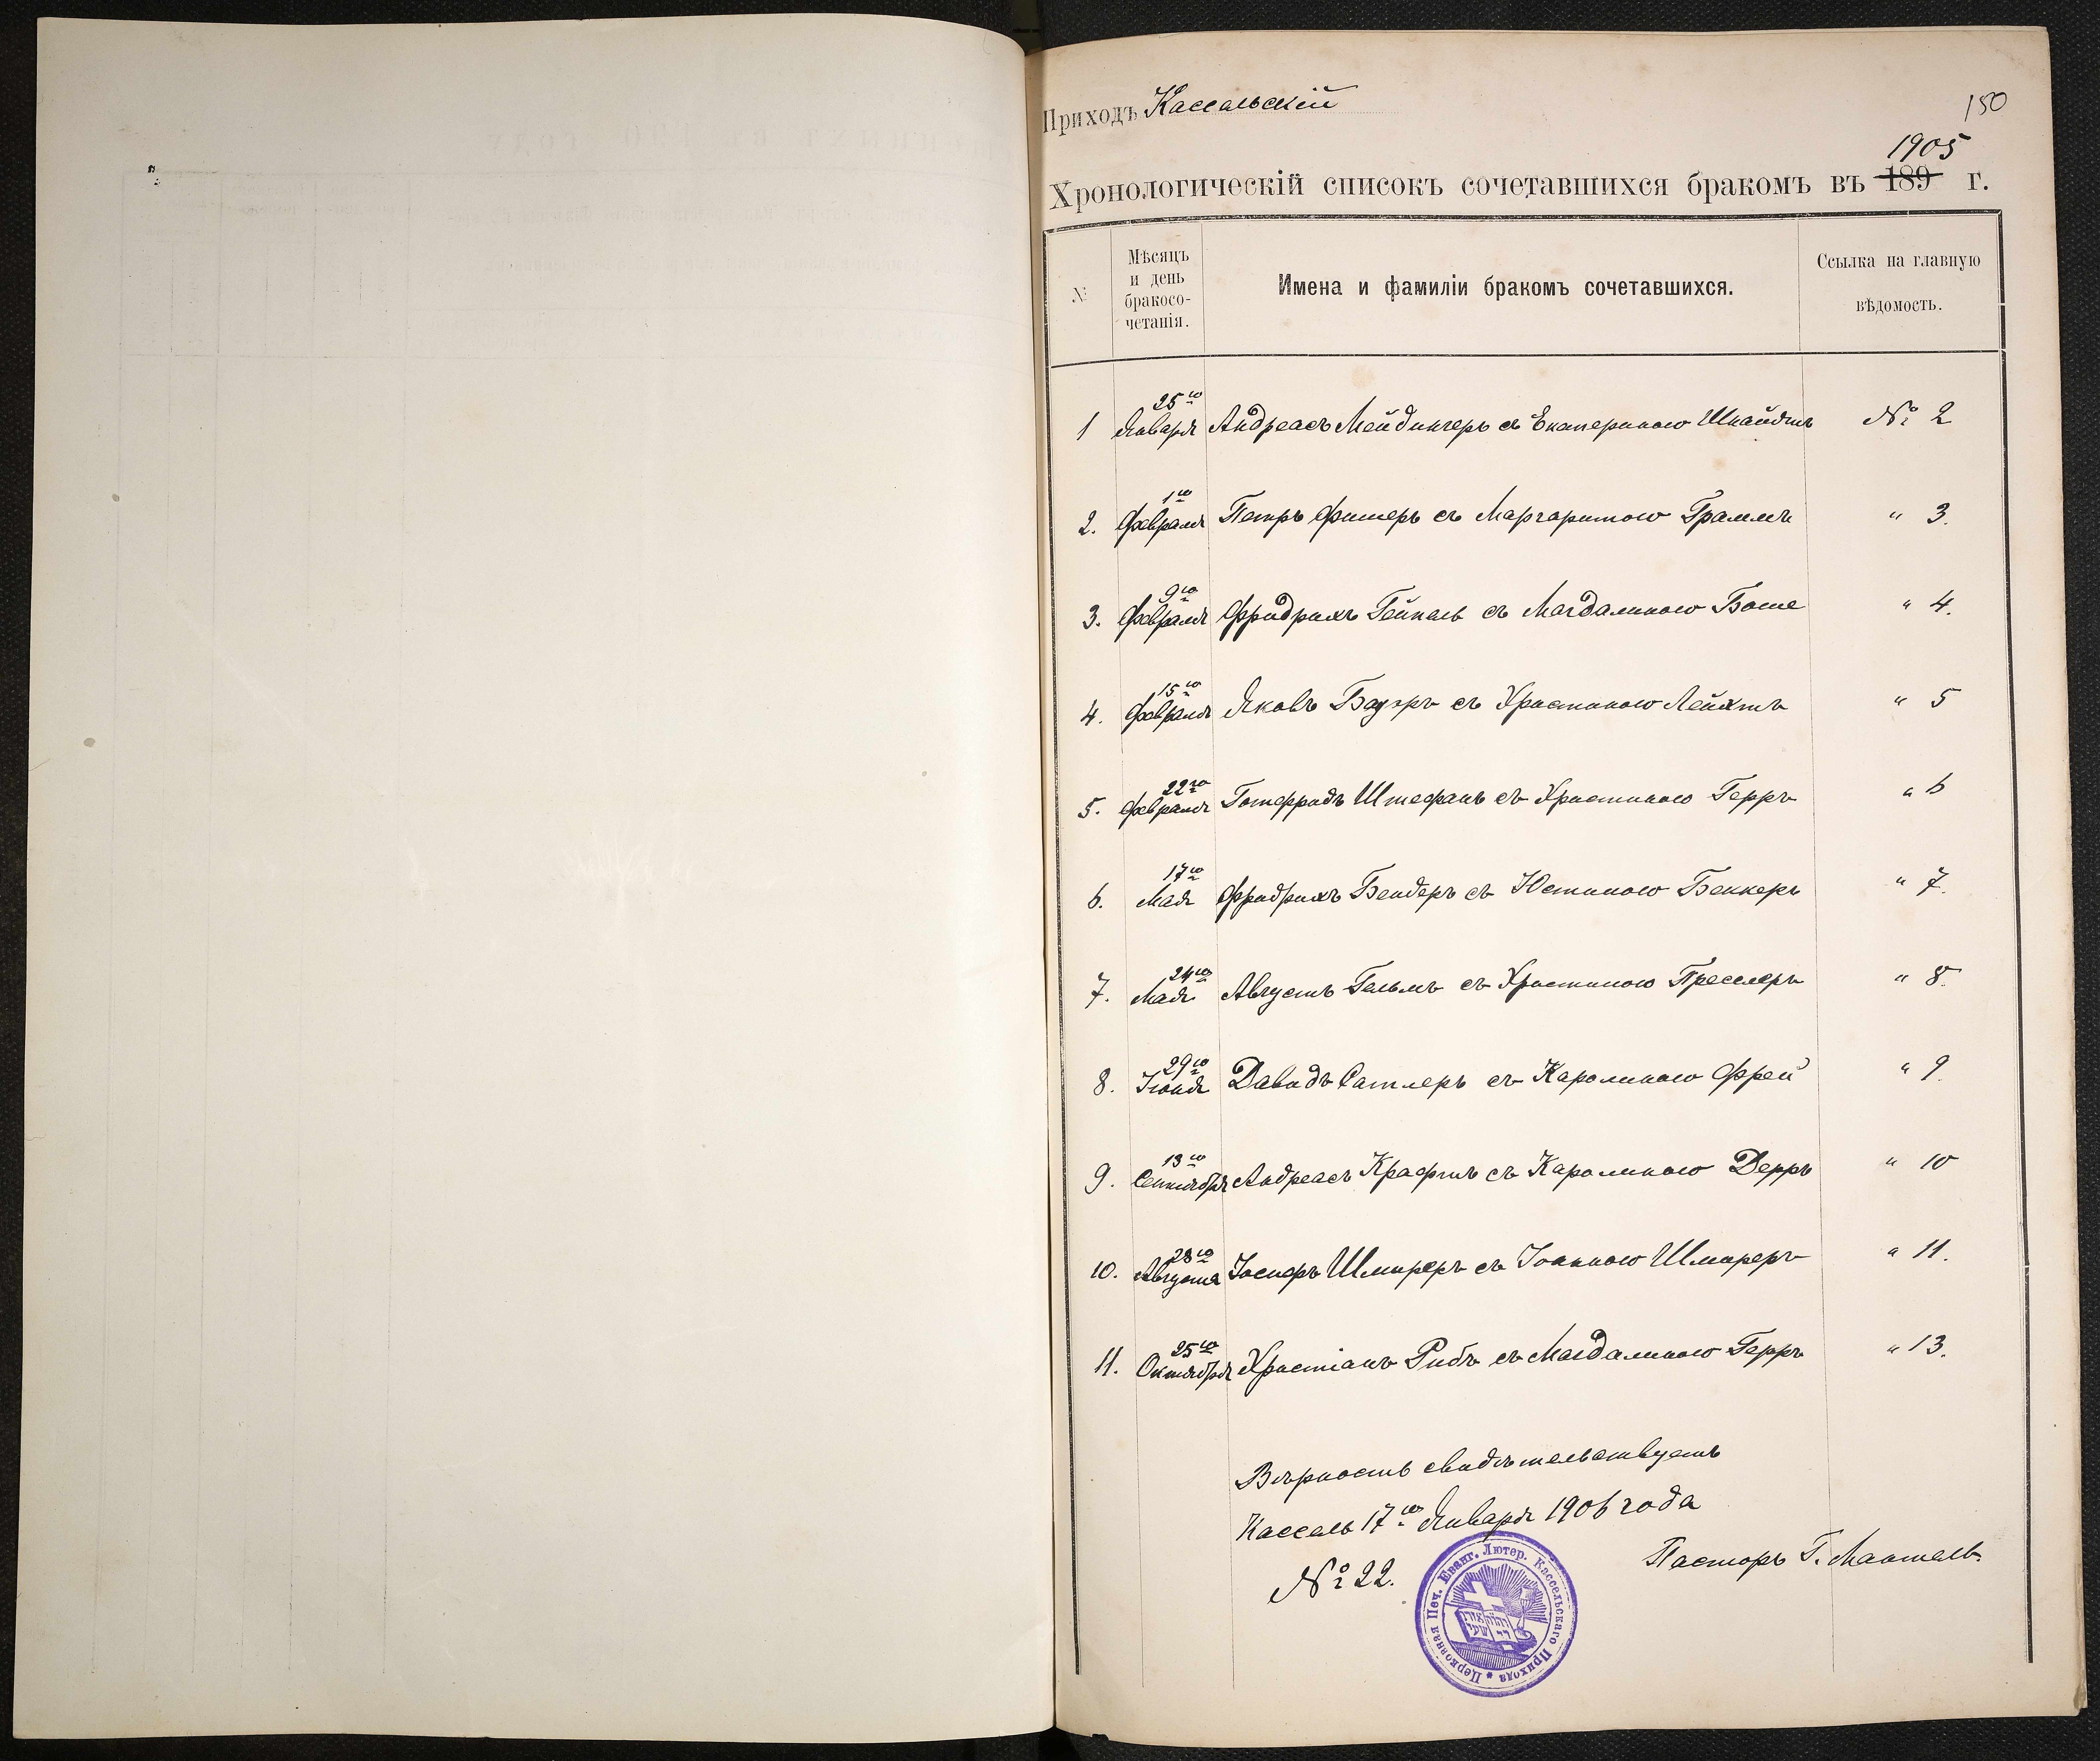 Приходъ Кассельскій
150
1905
Хронологическій списокъ сочетавшихся бракомъ въ 189 г.
№ Мѣсяцъ и день бракосо-четанія. Имена и фамиліи бракомъ сочетавшихся. Ссылка на главную вѣдомость.
1 25го Января Андреасъ Мейдингеръ съ Екатериною Шнайдтъ № 2
2. 1го Февраля Петръ Фишеръ съ Маргаритою Граммъ " 3.
3. 9го Февраля Фридрихъ Гейнель съ Магдалиною Боше " 4.
4. 15го Февраля Яковъ Бауэръ съ Христиною Лейхтъ " 5
5. 22го Февраля Готфридъ Штефанъ съ Христиною Герръ " 6
6. 17го Мая Фридрихъ Бендеръ съ Юстиною Беккеръ " 7.
7. 24го Мая Августъ Гельмъ съ Христиною Пресслеръ " 8.
8. 29го Іюня Давидъ Сатлеръ съ Каролиною Фрей " 9.
9. 13го Сентября Андреасъ Крафтъ съ Каролиною Дерръ " 10
10. 28го Августа Іосифъ Шмиреръ съ Іоанною Шмиреръ " 11.
11. 25го Октября Христіанъ Рибъ съ Магдалиною Герръ " 13.
Вѣрность свидѣтельствуетъ
Кассель 17го Января 1906 года
№ 22.
Пасторъ Г.
Церковная Печ. Еванг. Лютер. Кассельскаго Прихода